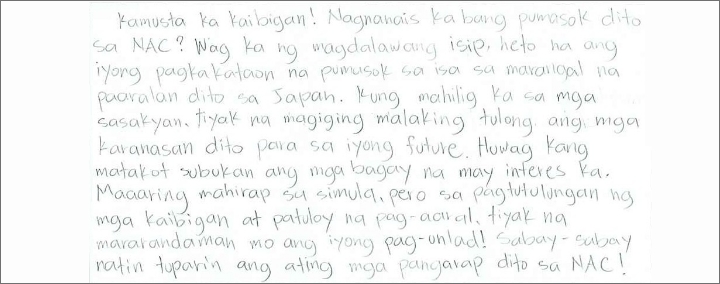 Kamusta ka kaibigan! Nagnanais ka bang pumasok dito
sa NAC? Wag ka ng magdalawang isip, heto na ang
iyong pagkakataon na pumasok sa isa sa marangal na
paaralan dito sa Japan. Kung mahilig ka sa mga
sasakyan, tiyak na magiging malaking tulong ang mga
karanasan dito para sa iyong future. Huwag kang
matakot subukan ang mga bagay na may interes ka.
Maaaring mahirap sa simula, pero sa pagtutulungan ng
mga kaibigan at patuloy na pag-aaral, tiyak na
mararamdaman mo ang iyong pag-unlad! Sabay-sabay
natin tuparin ang ating mga pangarap dito sa NAC!